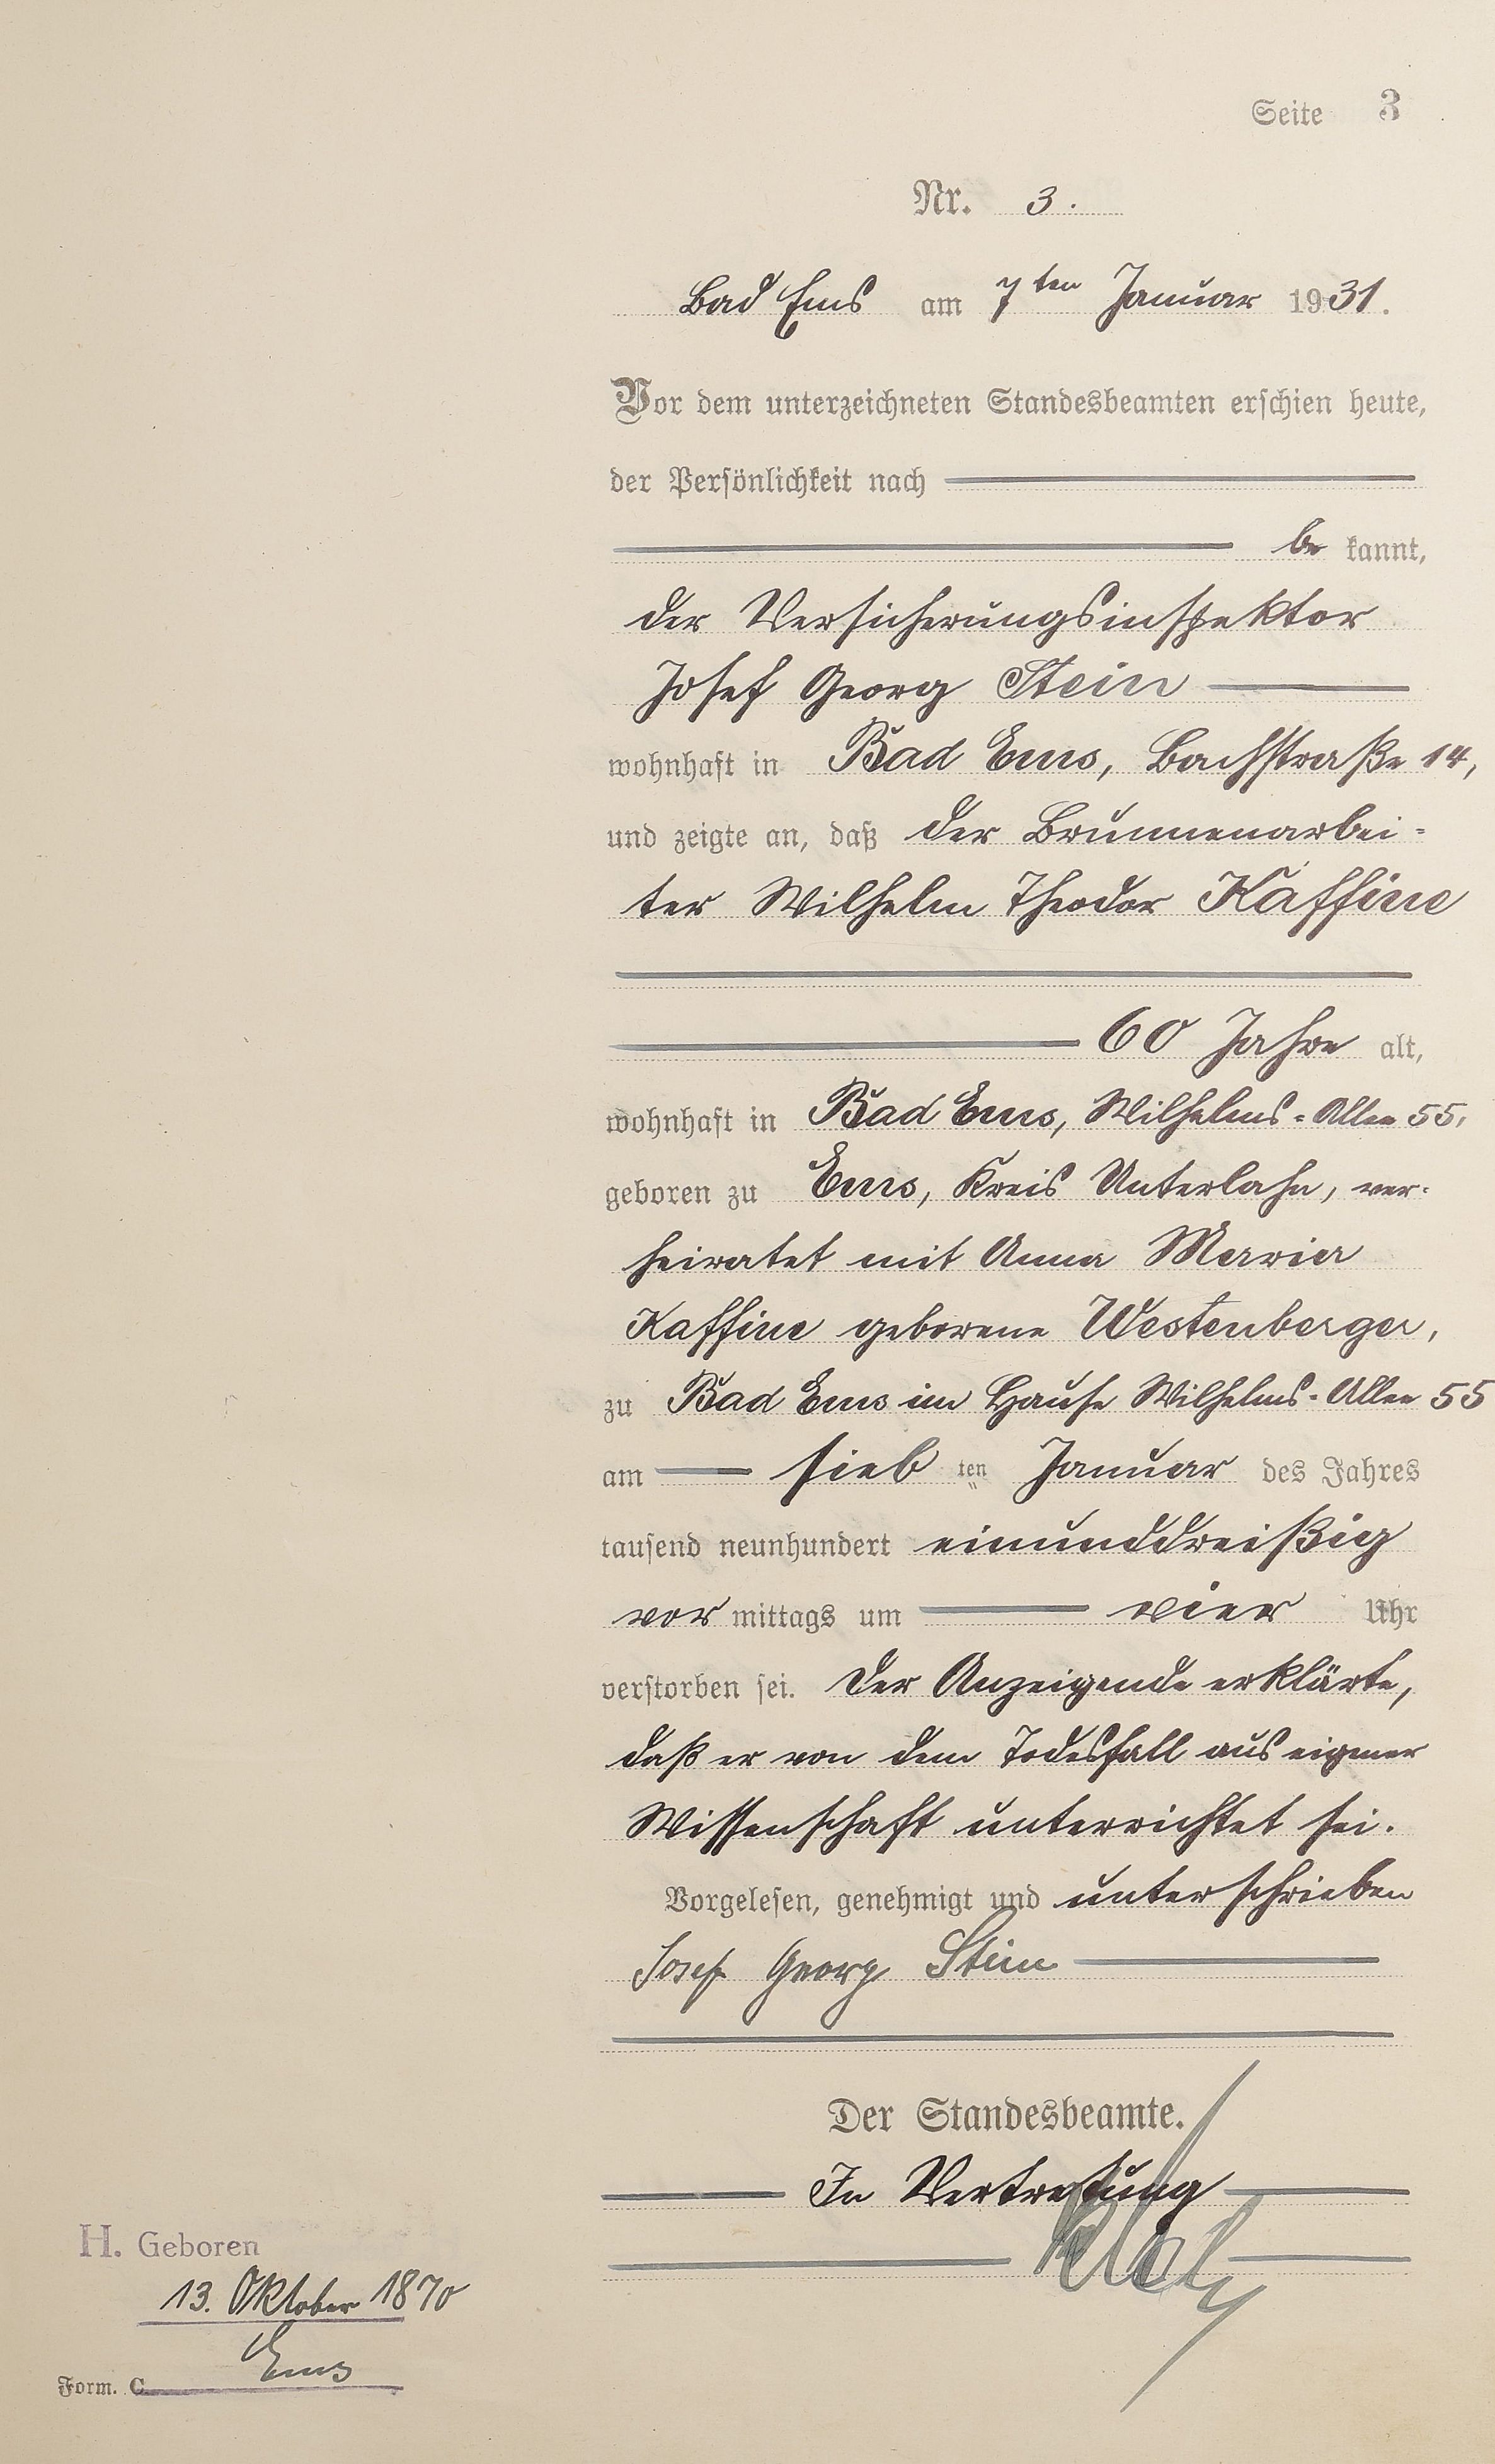 Seite 3
Nr. 3.
Bad Ems am 7ten Januar 1931.
Vor dem unterzeichneten Standesbeamten erschien heute,
der Persönlichkeit nach
be kannt,
der Versicherungsinspektor
Josef Georg Stein
wohnhaft in Bad Ems, Bachstraße 14,
und zeigte an, daß der Brunnenarbei-
ter Wilhelm Theodor Kaffine
60 Jahre alt,
wohnhaft in Bad Ems, Wilhelms-Allee 55,
geboren zu Ems, Kreis Unterlahn, ver-
heiratet mit Anna Maria
Kaffine geborene Westenberger,
zu Bad Ems im Hause Wilhelms-Allee 55
am sieb ten Januar des Jahres
tausend neunhundert einunddreißig
vor mittags um vier Uhr
verstorben sei. Der Anzeigende erklärte,
daß er von dem Todesfall aus eigener
Wissenschaft unterrichtet sei.
Vorgelesen, genehmigt und unterschrieben
Josef Georg Stein
Der Standesbeamte.
In Vertretung
H. Geboren
13. Oktober 1870
Ems
Form. C.